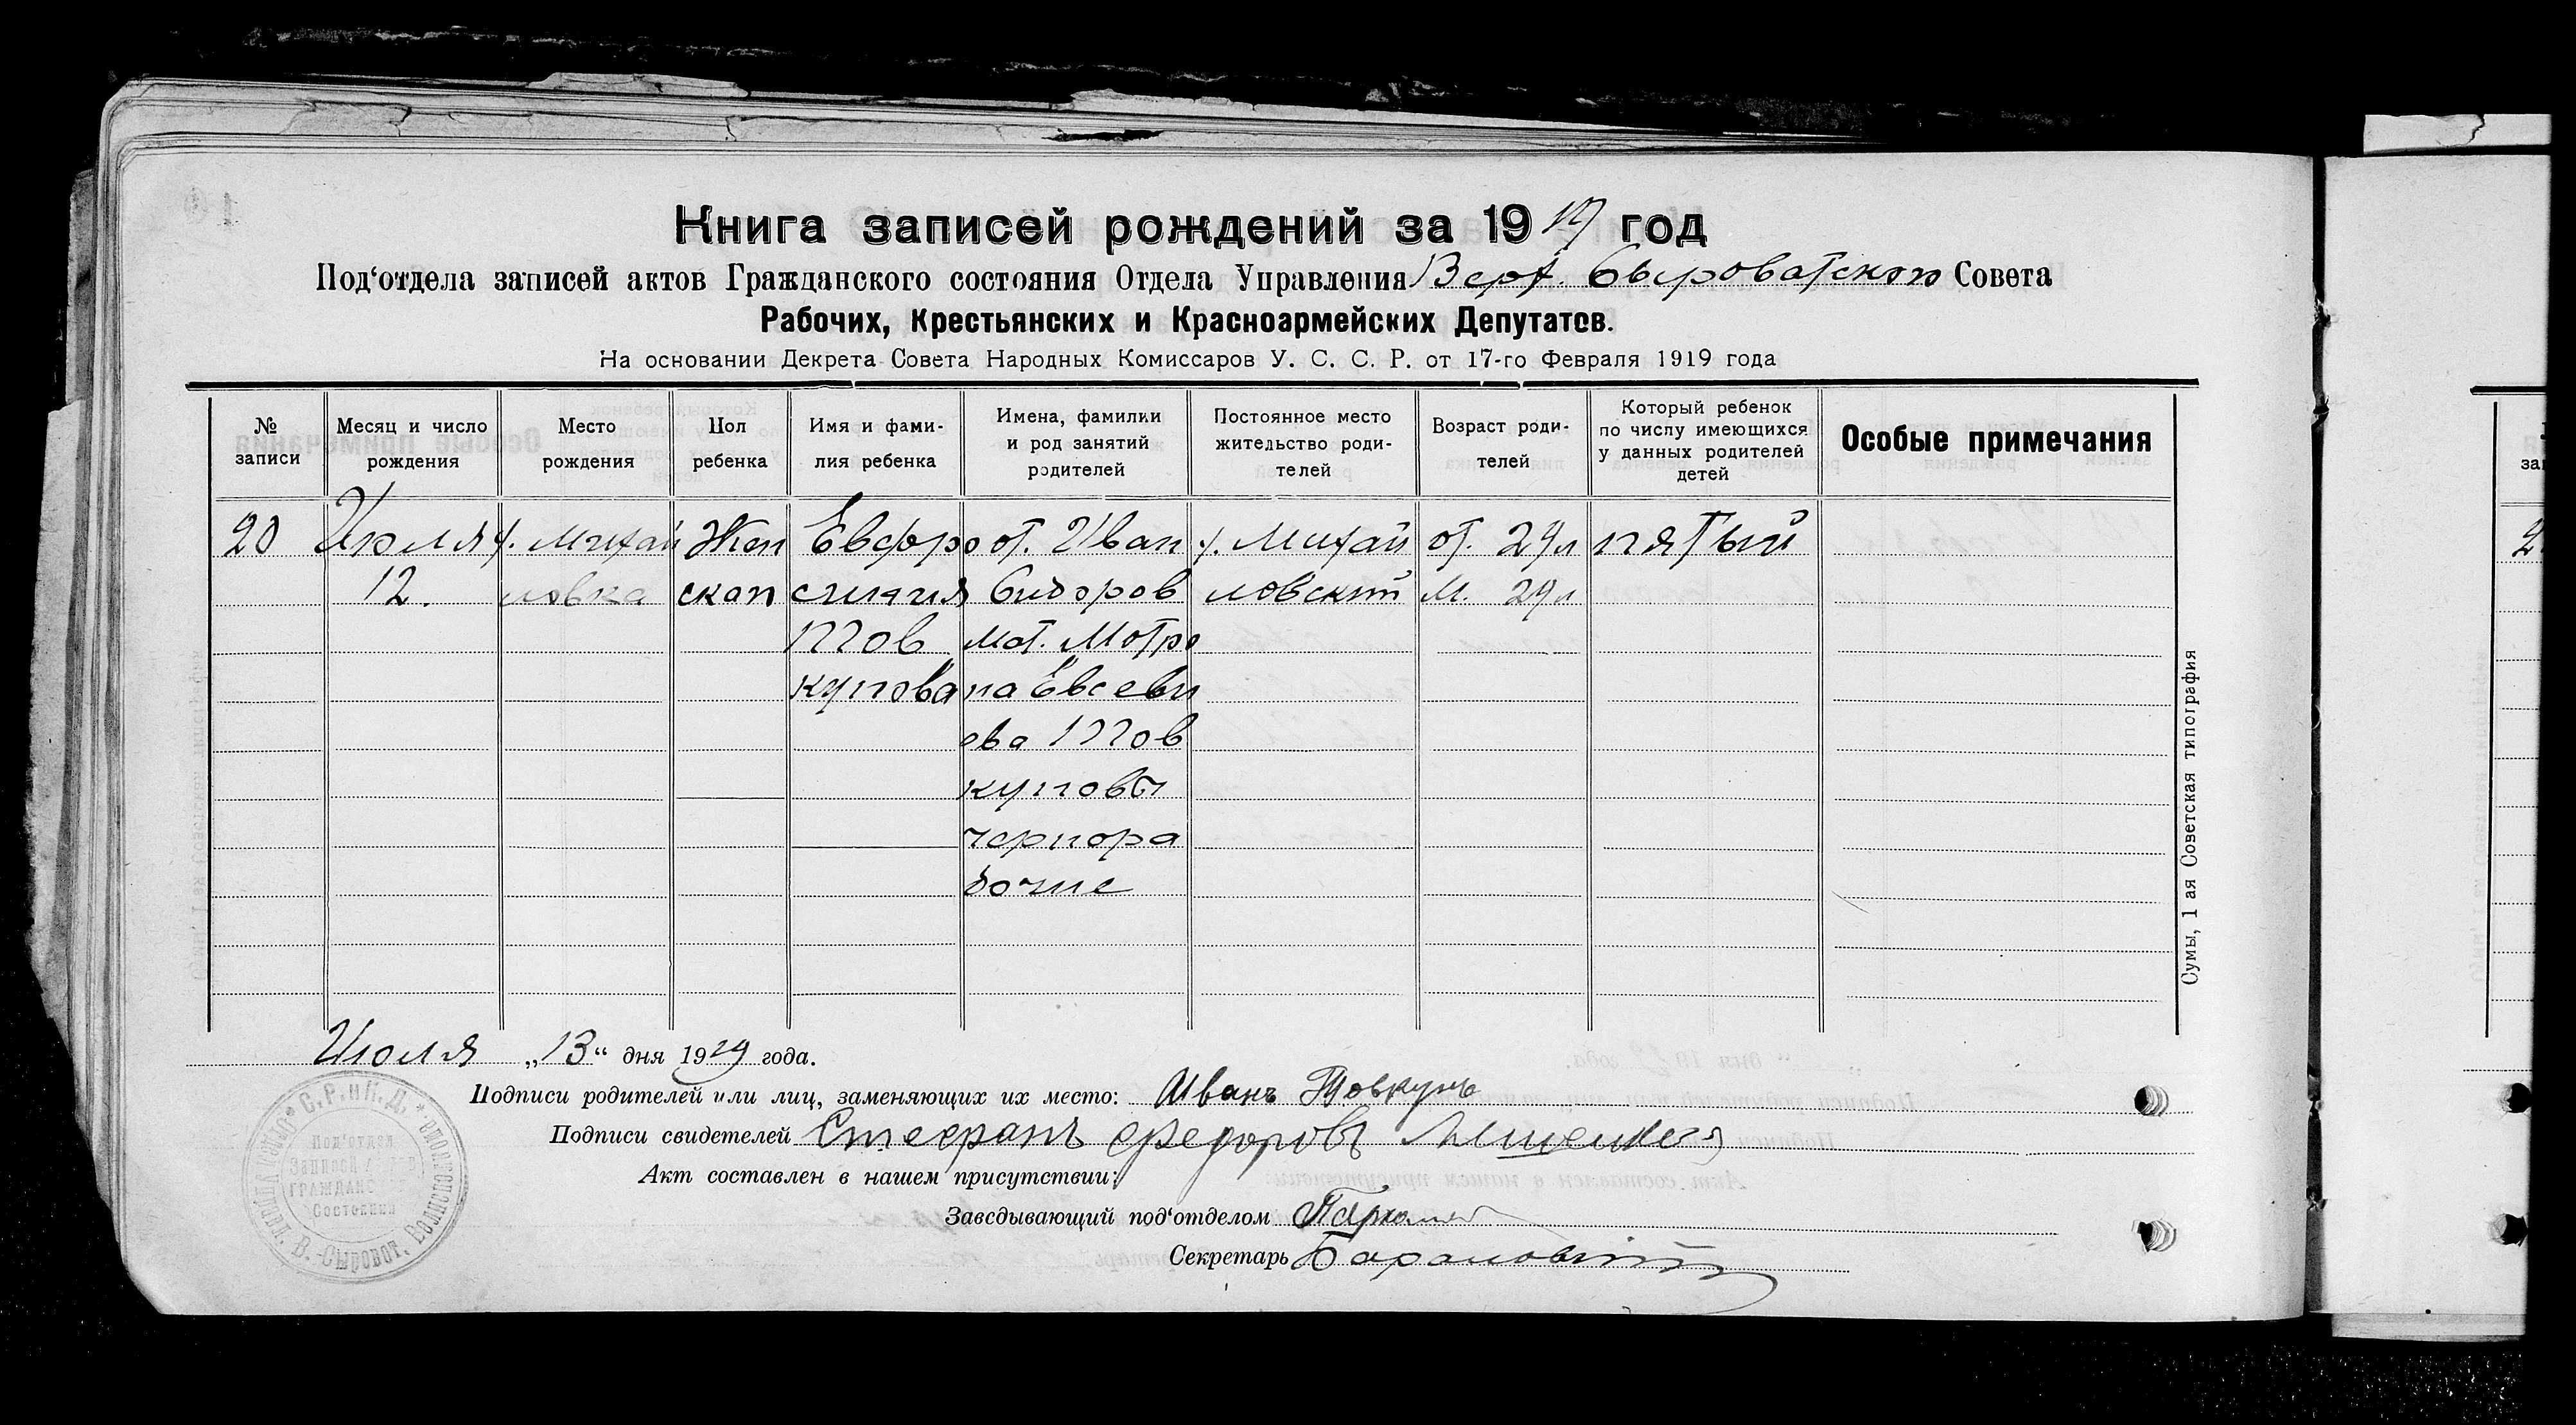 Книга записей рождений за 1919 год
Под'отдела записей актов Гражданского состояния Отдела Управления Верх. Сыроватского Совета
Рабочих, Крестьянских и Красноармейских Депутатов.
На основании Декрета Совета Народных Комиссаров У. С. С. Р. от 17-го Февраля 1919 года
№ записи
Месяц и число рождения
Место рождения
Пол ребенка
Имя и фамилия ребенка
Имена, фамилии и род занятий родителей
Постоянное место жительство родителей
Возраст родителей
Который ребенок по числу имеющихся у данных родителей детей
Особые примечания
20 Июля х. Михай Жен Евфро от. Иван х. Михай от. 29 л пятый
12. ловка ская синия Сидоров ловский м. 29 л
Тов мат. Мотро
кунова на Евсеви
ева Тов
куновы
черпора
бочие
Сумы, 1 ая Советская типография
Июля „13“ дня 1919 года.
Подписи родителей или лиц, заменяющих их место: Иванъ Товкунъ
Подписи свидетелей Стефанъ Федоровъ
Акт составлен в нашем присутствии:
Заведывающий под'отделом
Секретарь Барановский
С. Р. и К. Д.
Под'отдел
Записи
Граждан
Состояния
В.-Сыроват. Волисполкома